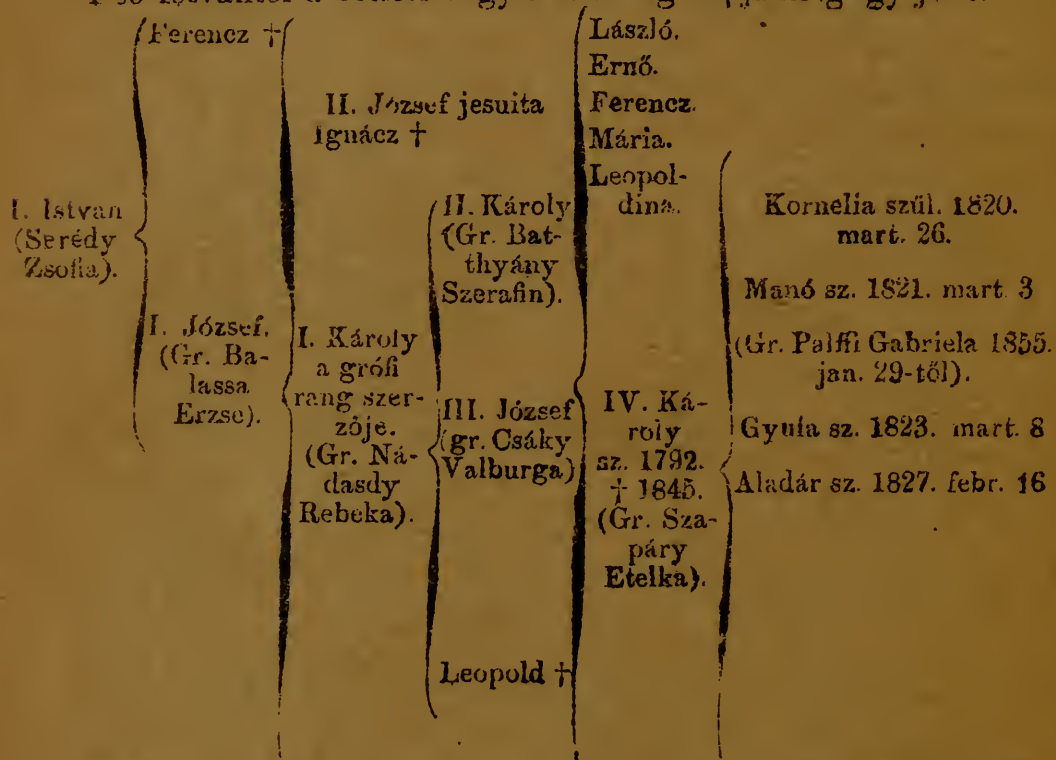 Ferencz †
I. Istvan
(Serédy
Zsofia).
I. József.
(Gr. Ba-
lassa
Erzse).
II. József jesuita
Ignácz †
I. Károly
a grófi
rang szer-
zője.
(Gr. Ná-
dasdy
Rebeka).
II. Károly
(Gr. Bat-
thyány
Szerafin).
III. József
(gr. Csáky
Valburga)
Leopold †
László.
Ernő.
Ferencz.
Mária.
Leopol-
dina.
IV. Ká-
roly
sz. 1792.
† 1845.
(Gr. Sza-
páry
Etelka).
Kornelia szül. 1820.
mart. 26.
Manó sz. 1821. mart. 3
(Gr. Palffi Gabriela 1855.
jan. 29-től).
Gyula sz. 1823. mart. 8
Aladár sz. 1827. febr. 16